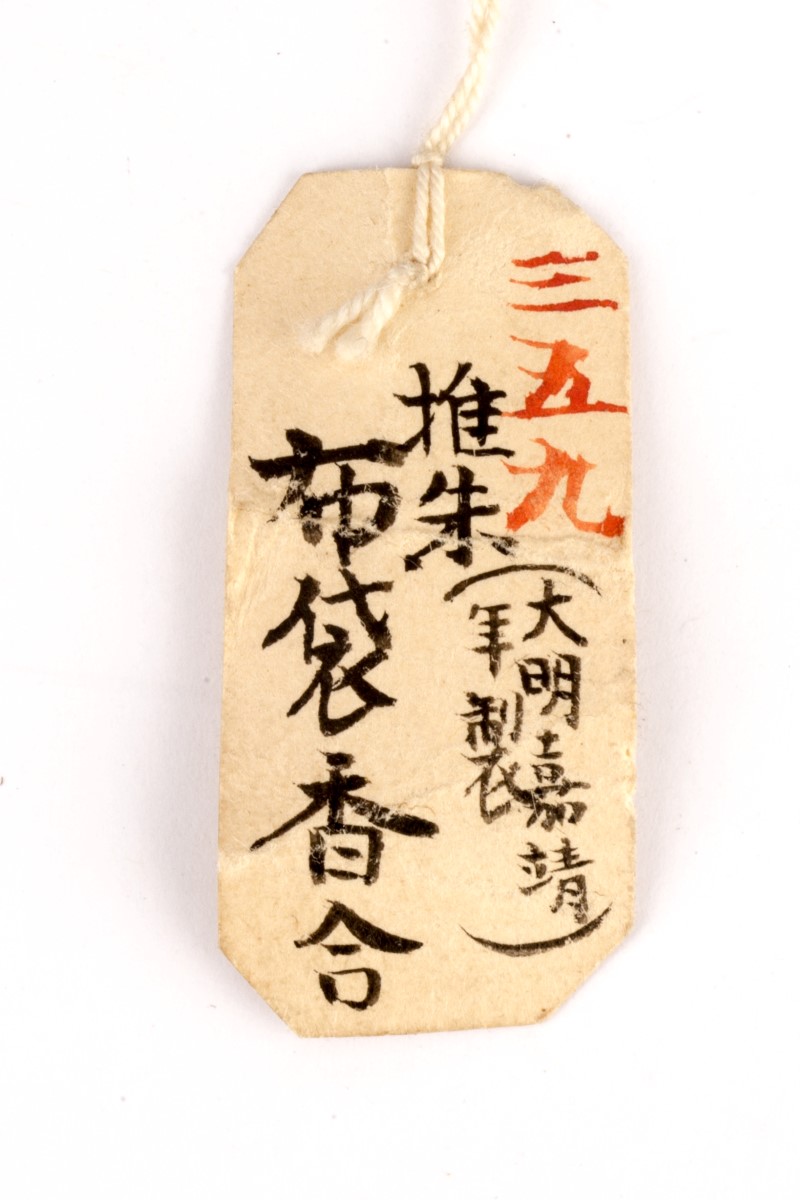 三五九
推朱
(大明嘉靖
年製)
布袋香合